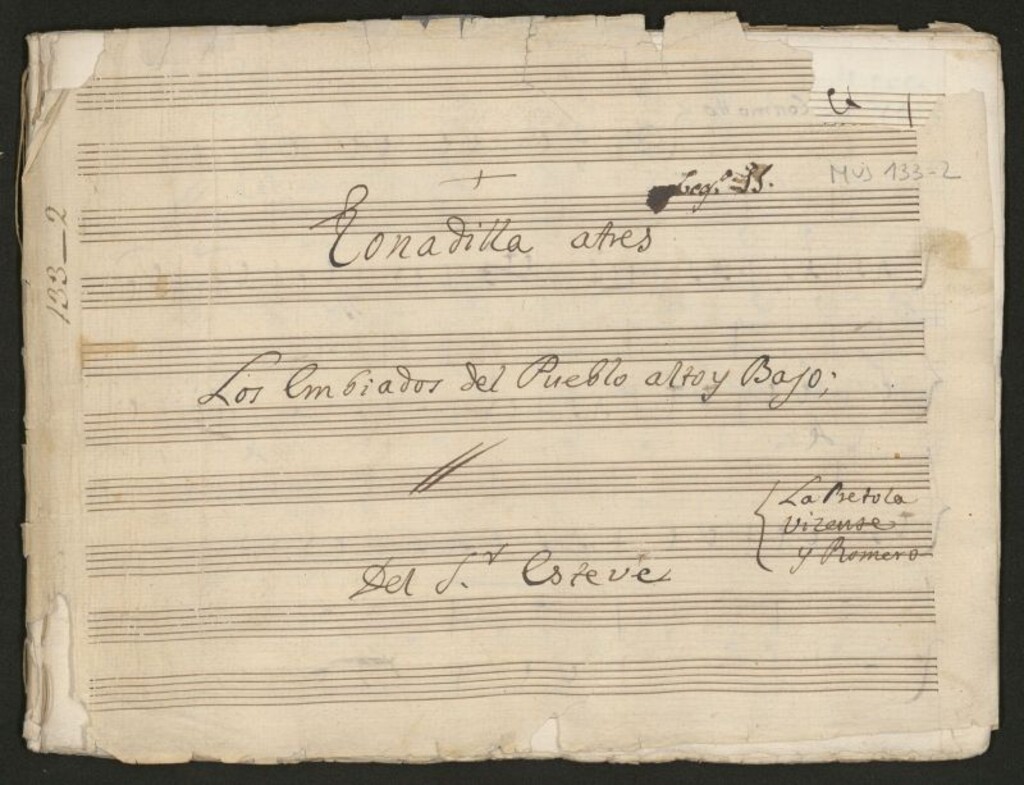 MUS 133-2
133-2
Leg.º
Tonadilla atres
Los Embiados del Pueblo alto y Bajo;
La Pretola
Vizense
y Romero
Del S.r Esteve